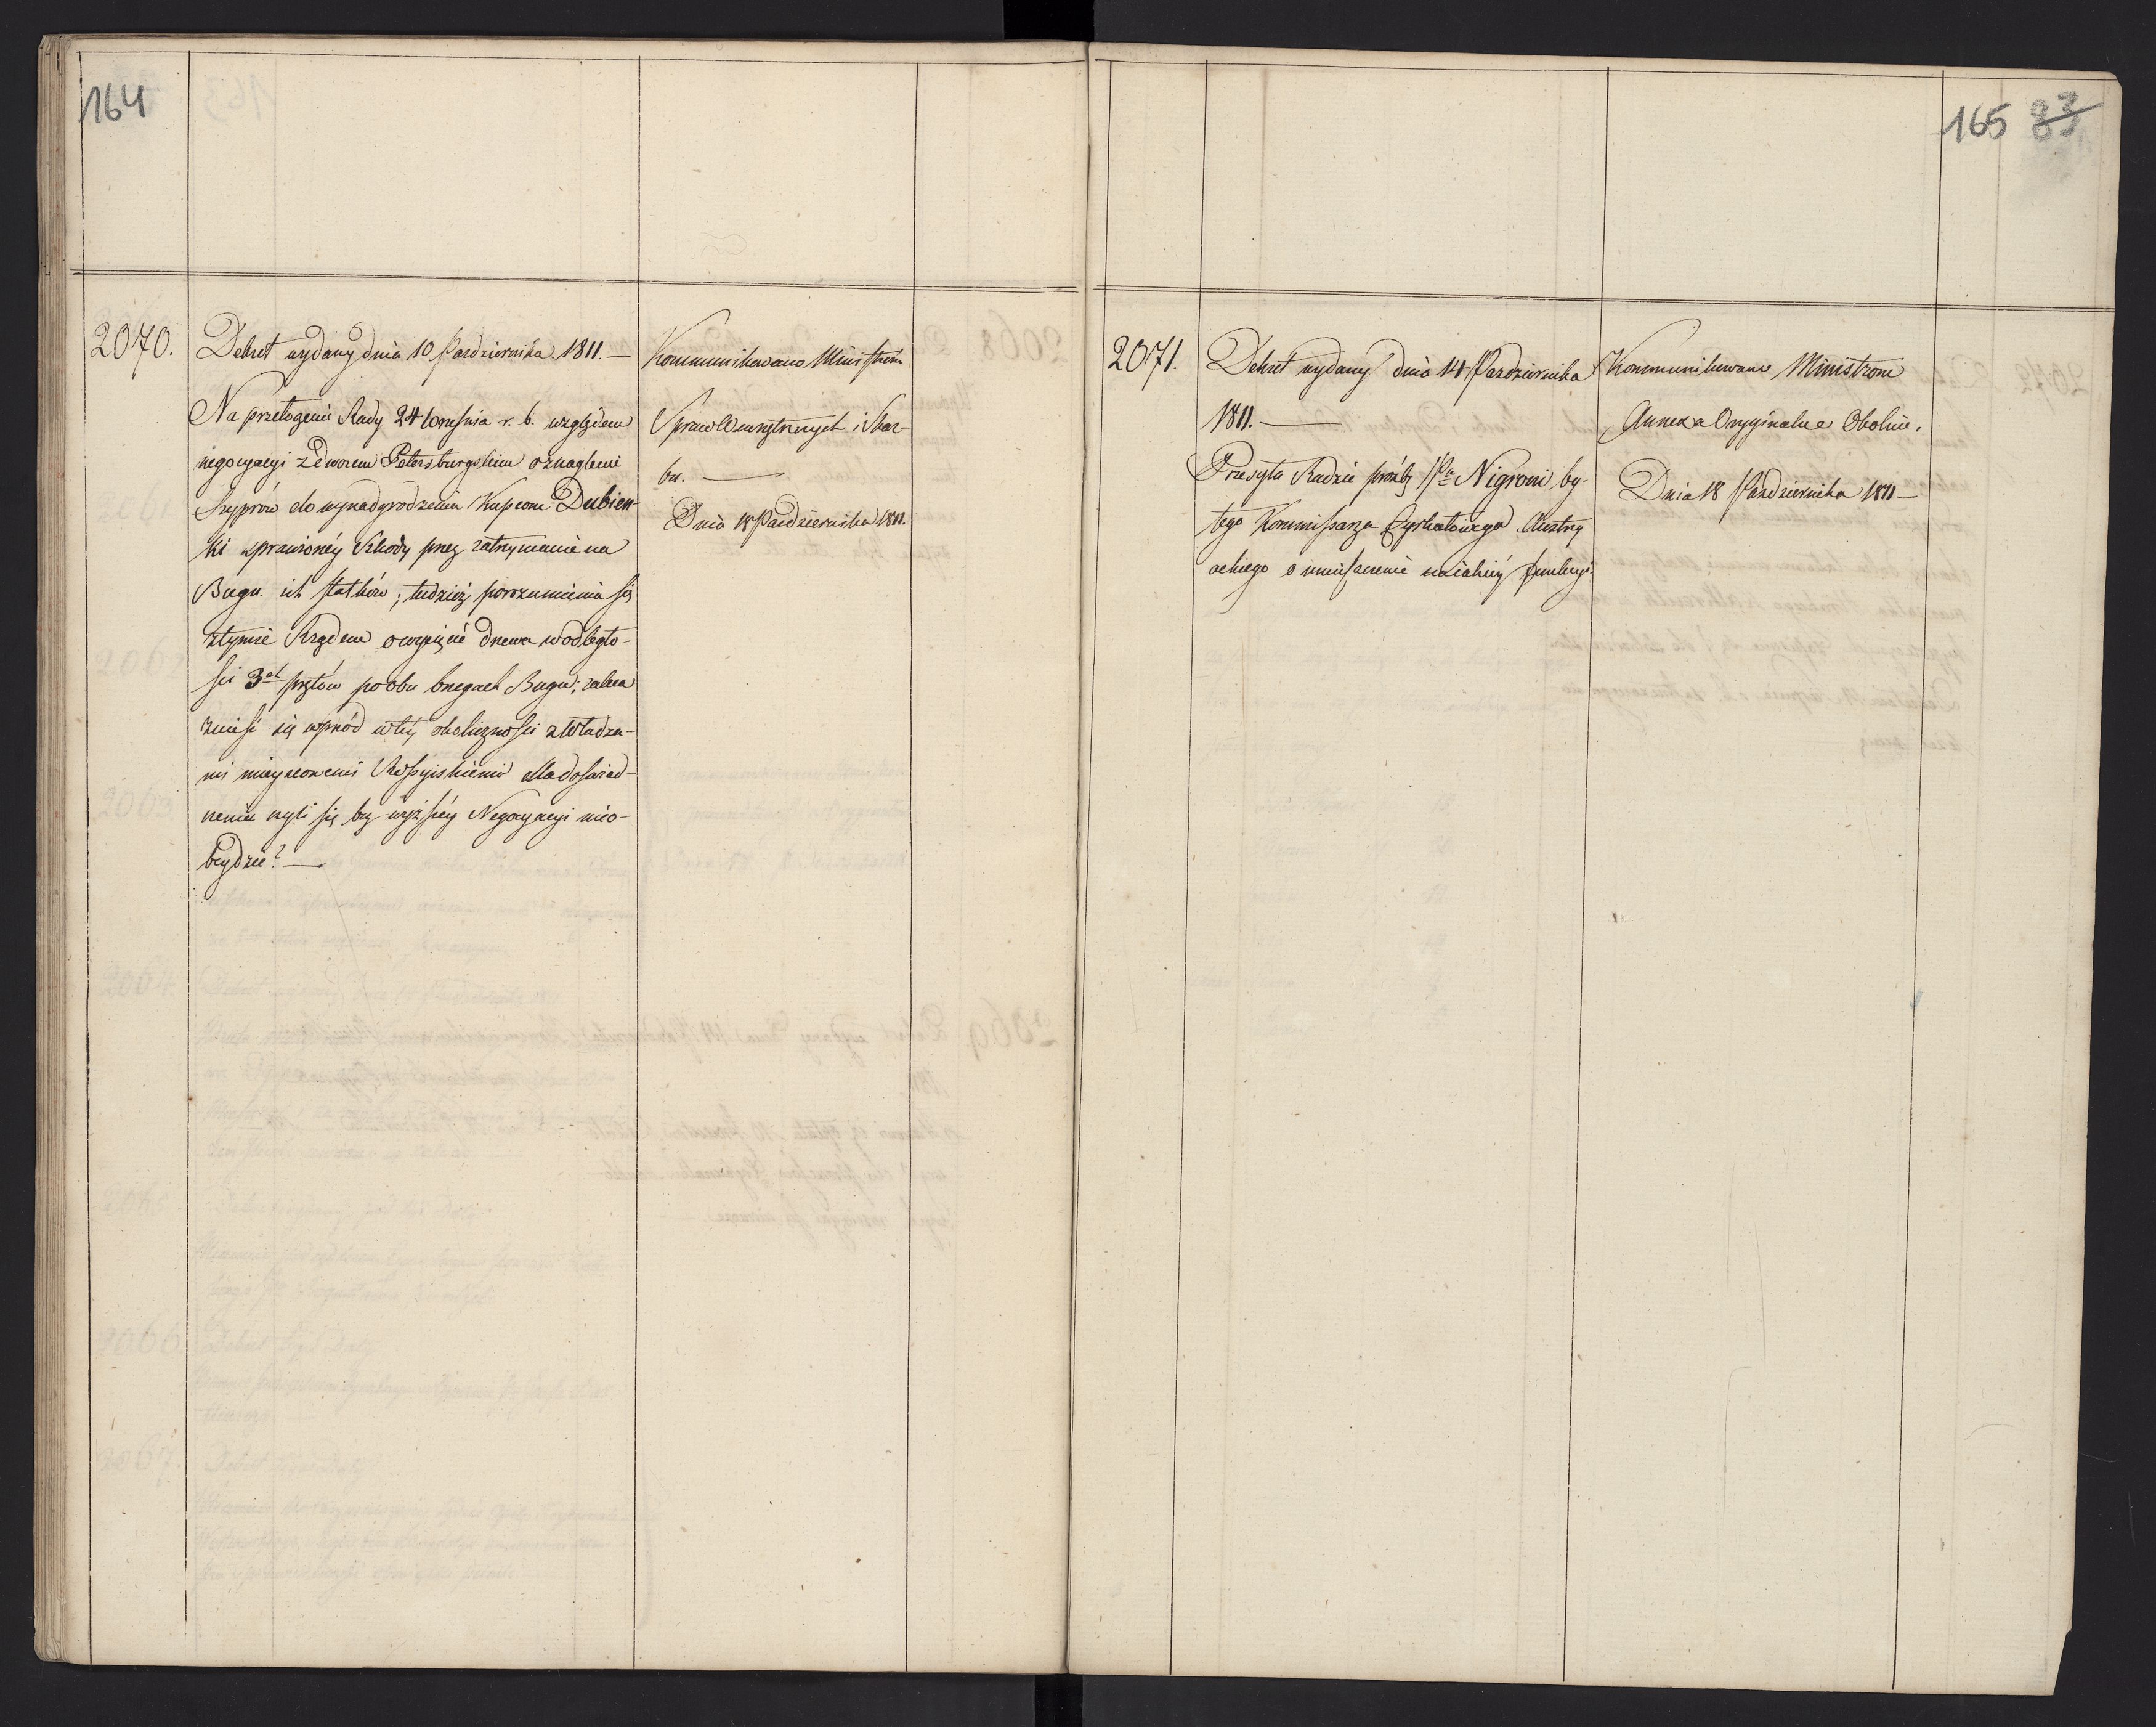 164
2070.
Dekret wydany dnia 10 Pazdziernika 1811. —
Na przełożenie Rady 24 Września r. b. względem
negocyacyi z dworem Petersburgskim o znaglenie
Szyprów do wynadgrodzenia Kupcom Dubien-
ki zprawionéy Szkody przez zatrzymanie na
Bugu ich statków; tudzież porozumienia się
ztymże Rządem o wycięcie drzewa w odległo-
ści 3ch prętów po obu brzegach Bugu; zaleca
znieść się wprzód w téy okoliczności z Władza-
mi mieyscowemi Rossyiskiemi dla doświad-
czenia czyli się bez wyższéy Negocyacyi nieo-
beydzie? —
Kommunikowano Ministrom
Spraw Wewnętrznych i Skar-
bu. —
Dnia 18 Pazdziernika 1811.
165 83
2071.
Dekret wydany dnia 14 Pazdziernika
1811. —
Przesyła Radzie prośbę Pa Nigroni, by-
łego Kommissarza Cyrkułowego Austry
ackiego o umieszczenie w iakiéy funkcyi.
Kommunikowano Ministrom
Annexa Oryginalne Obolnie.
Dnia 18 Pazdziernika 1811 —